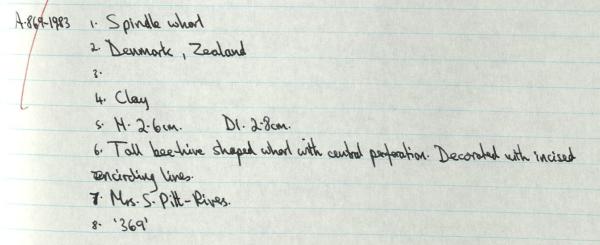 A.869-1983 1. Spindle whorl
2. Denmark, Zealand
3.
4. Clay
5. H. 2.6cm. DI. 2.8cm.
6. Tall bee-hive shaped whorl with central perforation. Decorated with incised
encircling lines.
7. Mrs. S. Pitt-Rivers.
8. '369'